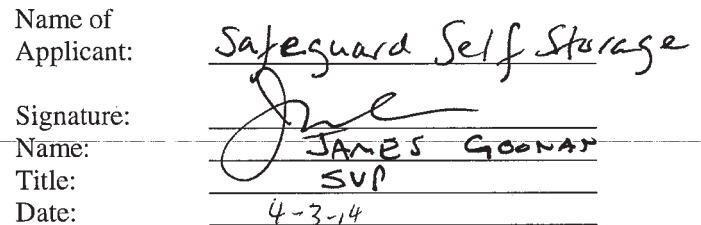 Name of
Applicant: Safeguard Self Storage
Signature:
Name: JAMES GOONAN
Title: SVP
Date: 4-3-14